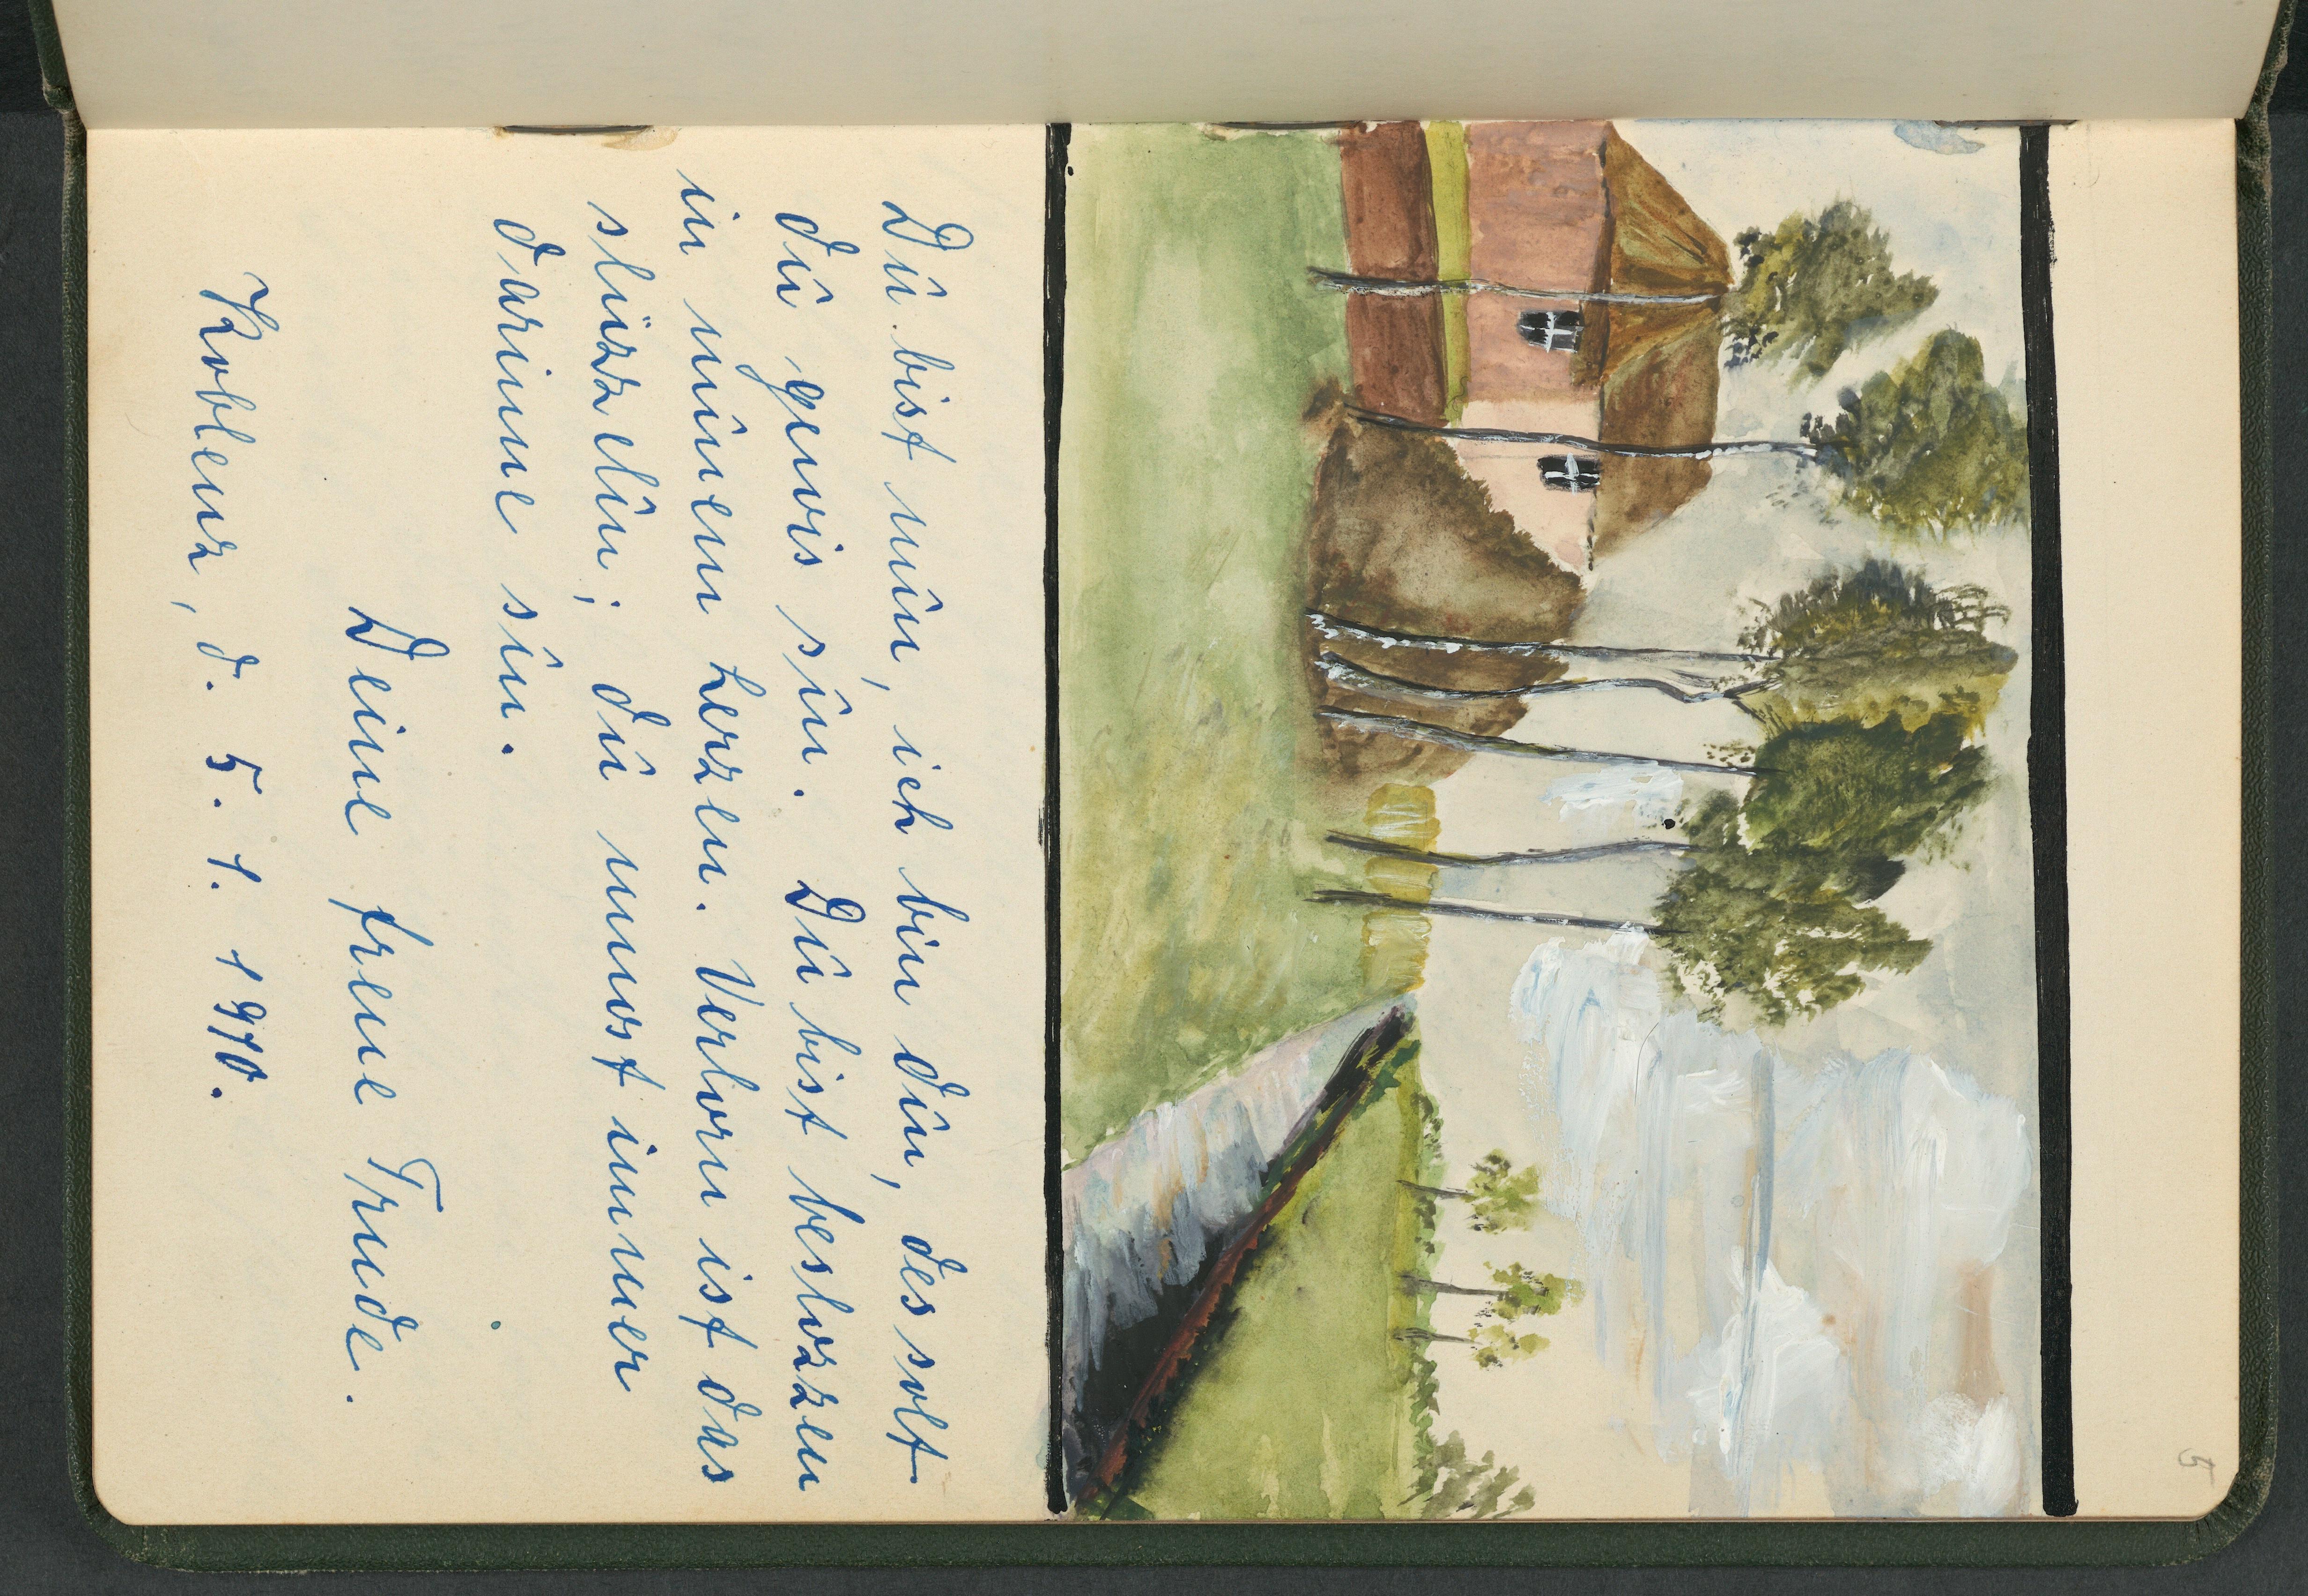 Dû bist mîn, ich bin dîn, des solt
dû gewis sîn. Dû bist beslozzen
in mînem herzen. Verlorn ist das
slüzzelîn; dû muost immer
darinne sîn.
Deine treue Trude.
Koblenz, d. 5. 1. 1910.
5